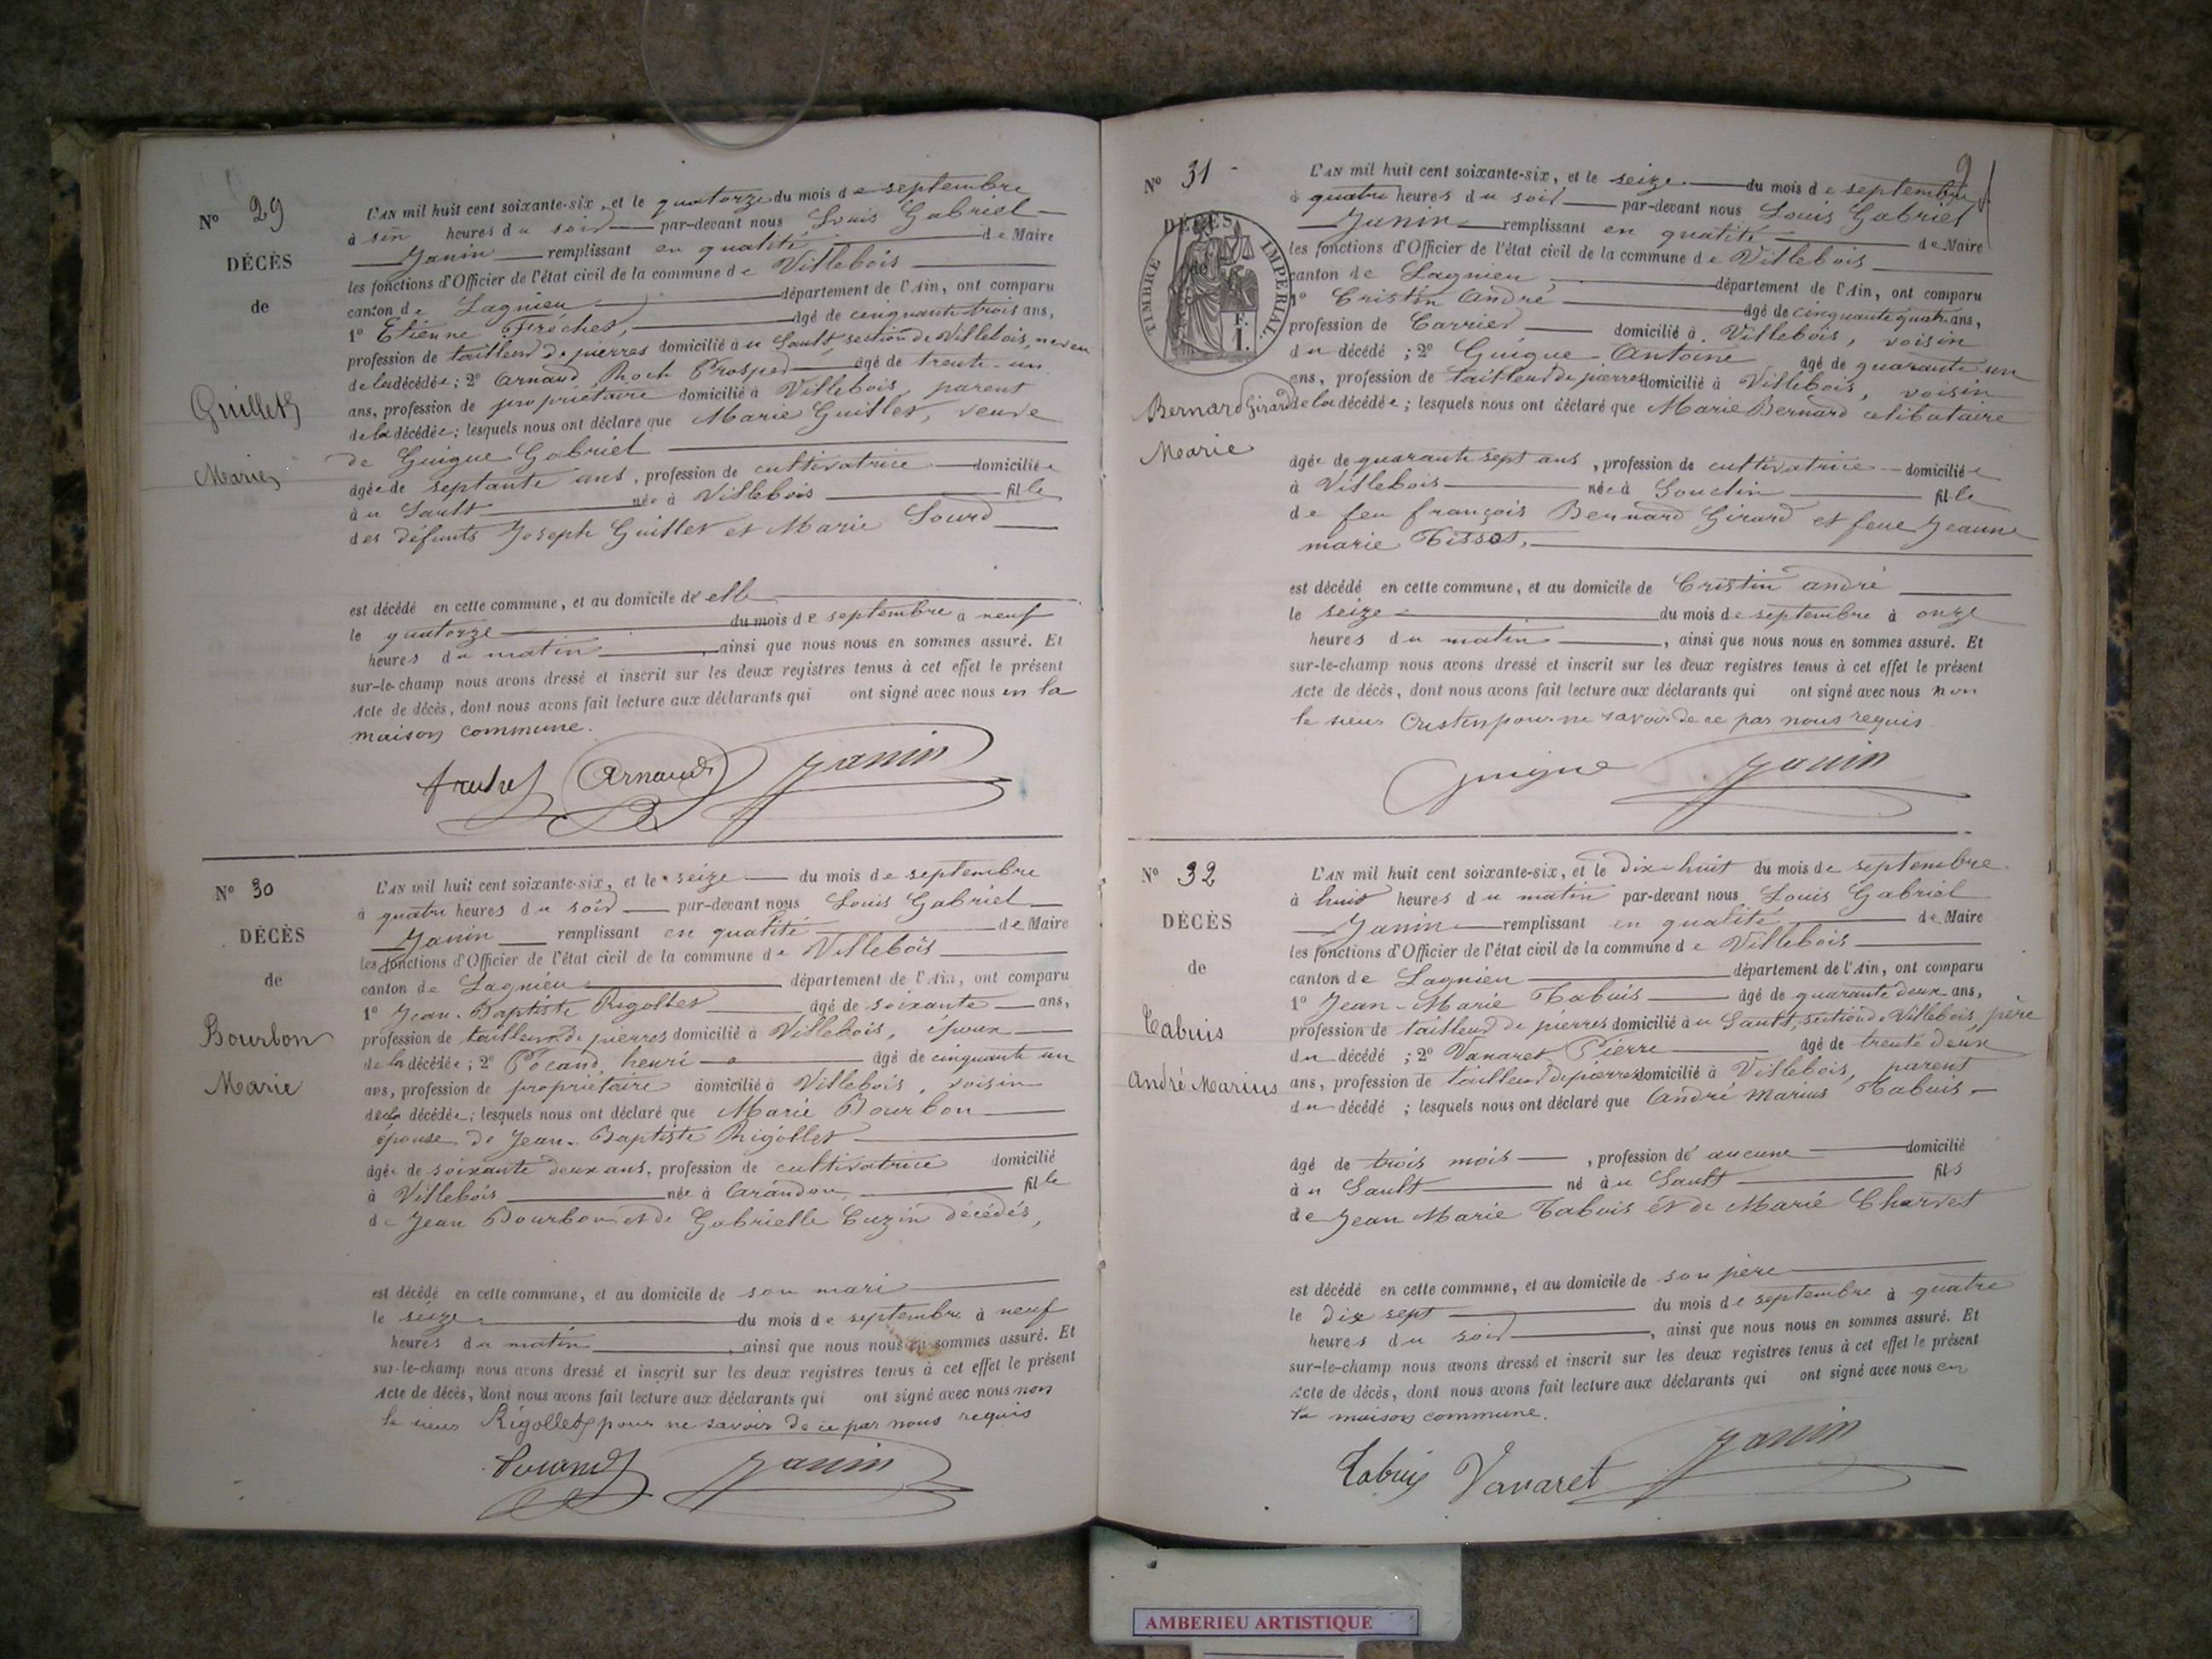 N° 29
DÉCÈS
de
Guillet
Marie
L'AN mil huit cent soixante-six, et le quatorze du mois de septembre
à six heures du soir par-devant nous Louis Gabriel
Janin remplissant en qualité de Maire
les fonctions d'Officier de l'état civil de la commune de Villebois
canton de Lagnieu département de l'Ain, ont comparu
1° Etienne Fréchet, âgé de cinquante-trois ans,
profession de tailleur de pierres domicilié à u Sault, section de Villebois, neveu
de la décédée; 2° Arnaud Roch Prosper âgé de trente-un
ans, profession de propriétaire domicilié à Villebois, parent
de la décédée; lesquels nous ont déclaré que Marie Guillet, veuve
de Guigue Gabriel
âgée de septante ans, profession de cultivatrice domiciliée
à u Sault née à Villebois fille
des défunts Joseph Guillet et Marie Sourd
est décédé en cette commune, et au domicile de elle
le quatorze du mois de septembre à neuf
heures du matin, ainsi que nous nous en sommes assuré. Et
sur-le-champ nous avons dressé et inscrit sur les deux registres tenus à cet effet le présent
Acte de décès, dont nous avons fait lecture aux déclarants qui ont signé avec nous en la
maison commune.
Arnaud Janin
N° 30
DÉCÈS
de
Bourbon
Marie
L'AN mil huit cent soixante-six, et le seize du mois de septembre
à quatre heures du soir par-devant nous Louis Gabriel
Janin remplissant en qualité de Maire
les fonctions d'Officier de l'état civil de la commune de Villebois
canton de Lagnieu département de l'Ain, ont comparu
1° Jean-Baptiste Rigollet âgé de soixante ans,
profession de tailleur de pierres domicilié à Villebois, époux
de la décédée; 2° Pocand henri âgé de cinquante un
ans, profession de propriétaire domicilié à Villebois, voisin
de la décédée; lesquels nous ont déclaré que Marie Bourbon
épouse de Jean-Baptiste Rigollet
âgée de soixante deux ans, profession de cultivatrice domicilié
à Villebois née à Arandon fille
de Jean Bourbon et de Gabrielle Cuzin décédés,
est décédé en cette commune, et au domicile de son mari
le seize du mois de septembre à neuf
heures du matin, ainsi que nous nous en sommes assuré. Et
sur-le-champ nous avons dressé et inscrit sur les deux registres tenus à cet effet le présent
Acte de décès, dont nous avons fait lecture aux déclarants qui ont signé avec nous non
le sieur Rigollet pour ne savoir de ce par nous requis
Pocand Janin
9
N° 31
DÉCÈS
de
TIMBRE IMPERIAL
F.
1.
Bernard Girard
Marie
L'AN mil huit cent soixante-six, et le seize du mois de septembre
à quatre heures du soir par-devant nous Louis Gabriel
Janin remplissant en qualité de Maire
les fonctions d'Officier de l'état civil de la commune de Villebois
canton de Lagnieu, département de l'Ain, ont comparu
1° Cristin André âgé de cinquante quatre ans,
profession de Carrier domicilié à Villebois, voisin
du décédé; 2° Guigue Antoine âgé de quarante un
ans, profession de tailleur de pierres domicilié à Villebois, voisin
de la décédée; lesquels nous ont déclaré que Marie Bernard célibataire
âgée de quarante sept ans, profession de cultivatrice domiciliée
à Villebois née à Souclin fille
de feu françois Bernard Girard et feue Jeanne
marie Tissot,
est décédé en cette commune, et au domicile de Cristin andré
le seize du mois de septembre à onze
heures du matin, ainsi que nous nous en sommes assuré. Et
sur-le-champ nous avons dressé et inscrit sur les deux registres tenus à cet effet le présent
Acte de décès, dont nous avons fait lecture aux déclarants qui ont signé avec nous non
le sieur Cristin pour ne savoir de ce par nous requis
Guigue Janin
N° 32
DÉCÈS
de
Tabuis
André Marius
L'AN mil huit cent soixante-six, et le dix-huit du mois de septembre
à huit heures du matin par-devant nous Louis Gabriel
Janin remplissant en qualité de Maire
les fonctions d'Officier de l'état civil de la commune de Villebois
canton de Lagnieu département de l'Ain, ont comparu
1° Jean-Marie Tabuis âgé de quarante deux ans,
profession de tailleur de pierres domicilié à u Sault, section de Villebois, père
du décédé; 2° Vanaret Pierre âgé de trente deux
ans, profession de tailleur de pierres domicilié à Villebois, parent
du décédé; lesquels nous ont déclaré que André Marius Tabuis
âgé de trois mois, profession de aucune domicilié
à u Sault né à u Sault fils
de Jean Marie Tabuis et de Marie Charvet
est décédé en cette commune, et au domicile de son père
le dix sept du mois de septembre à quatre
heures du soir, ainsi que nous nous en sommes assuré. Et
sur-le-champ nous avons dressé et inscrit sur les deux registres tenus à cet effet le présent
Acte de décès, dont nous avons fait lecture aux déclarants qui ont signé avec nous en
la maison commune.
Tabuis Vanaret Janin
AMBERIEU ARTISTIQUE